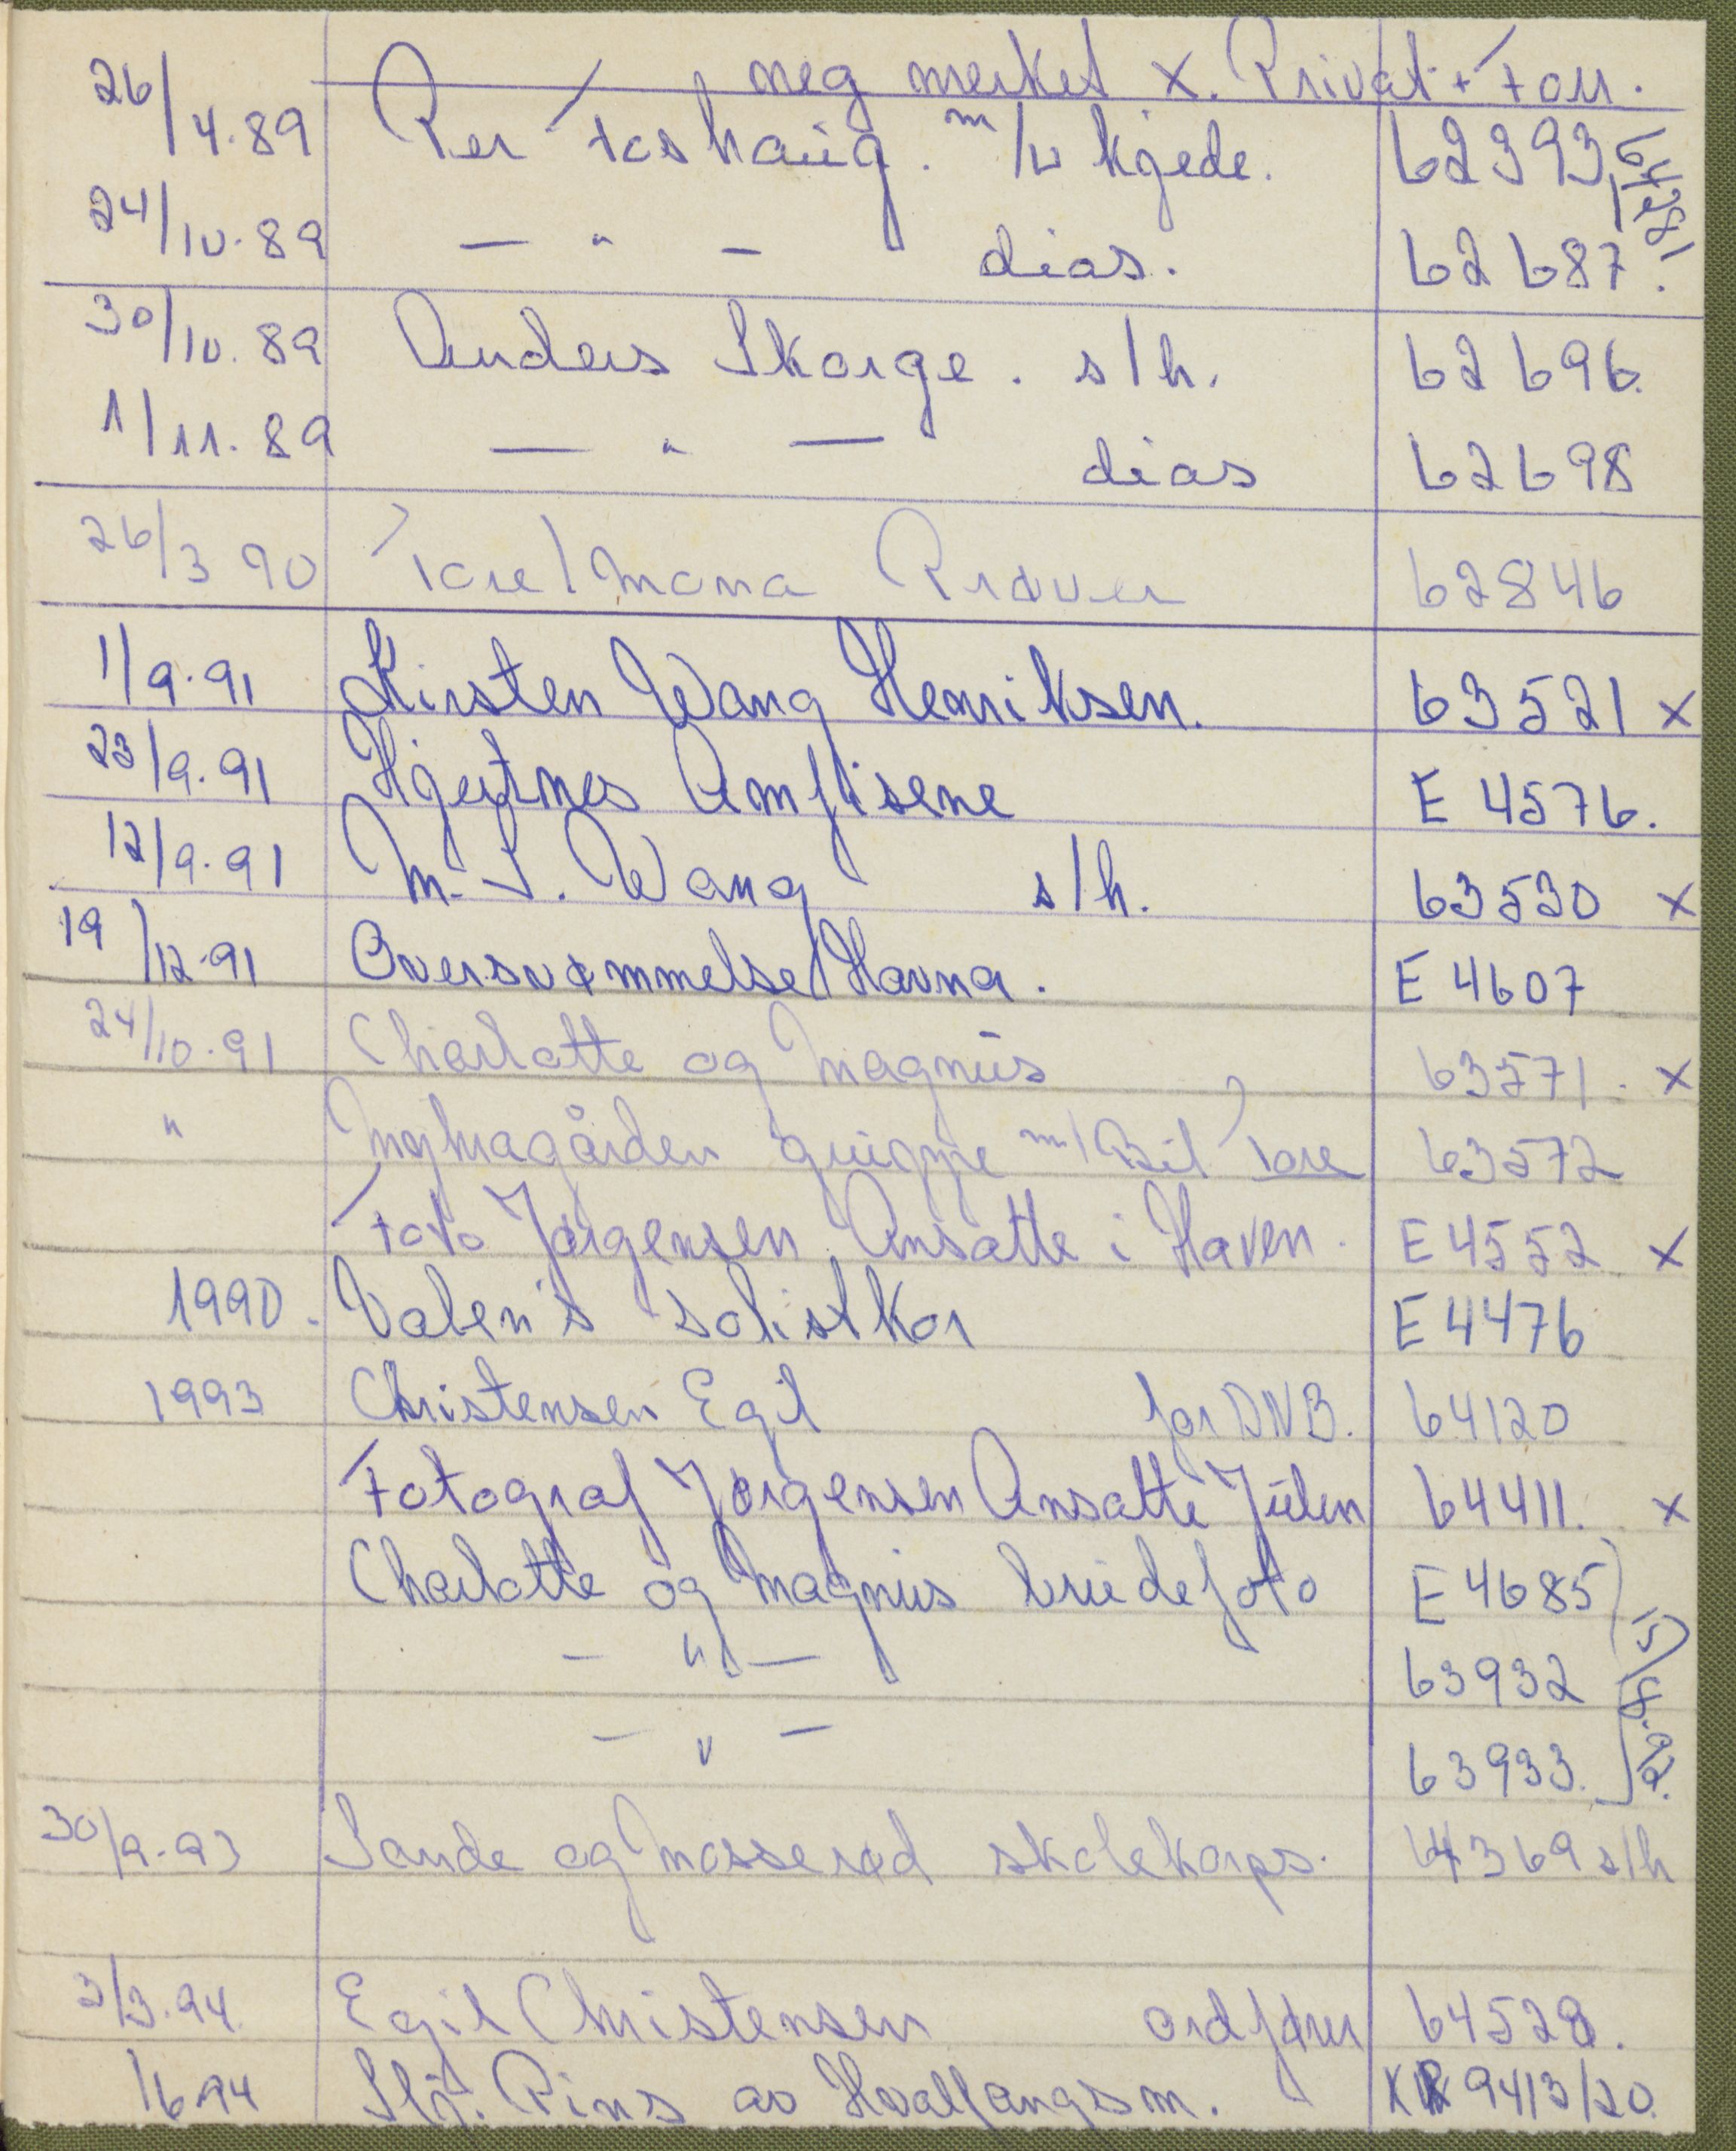 neg merket x. Privat + Forr.
26/4.89 Per Foshaug. m/u kjede. 62393
24/10.89 — " — dias. 62687.
30/10.89 Anders Skorge. s/h. 62696.
1/11.89 — " — dias 62698
26/3 90 Tore/Mona Prøver 62846
1/9.91 Kirsten Wang Henriksen. 63521 x
23/9.91 Hjertnes Amflisene E 4576.
12/9.91 M. S. Wang s/h. 63530 x
19/12.91 Oversvømmelse/Havna. E 4607
24/10.91 Charlotte og Magnus 63571. x
" gruppe m/Bil Tore 63572
Foto Jørgensen. Ansatte i Haven. E 4552 x
1990. Valen's solistkor E 4476
1993 Christensen Egil for DNB. 64120
Fotograf Jørgensen Ansatte Julen 64411. x
Charlotte og Magnus brudefoto E 4685
— " — 63932 15/8.92.
— " — 63933.
30/9-93 Sande og Mosserød skolekorps. 64369 s/h
3/3.94. Egil Christensen ordfører 64528.
1/6 94 Sfj. Pins av Hvalfangsm. 9413/20.